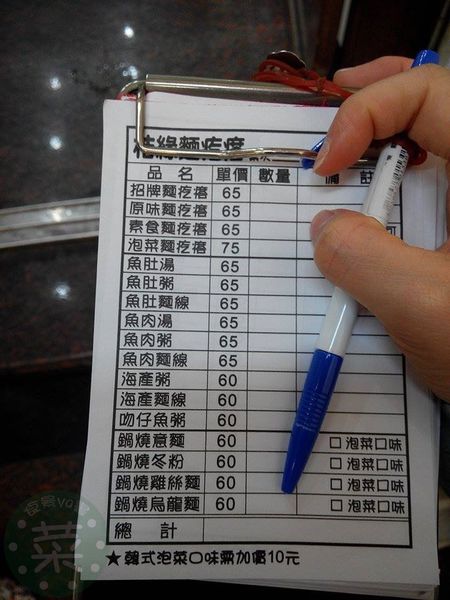 緣麵疙瘩
品 名 單價 數量 備 註
招牌麵疙瘩 65
原味麵疙瘩 65
素食麵疙瘩 65
泡菜麵疙瘩 75
魚肚湯 65
魚肚粥 65
魚肚麵線 65
魚肉湯 65
魚肉粥 65
魚肉麵線 65
海產粥 60
海產麵線 60
吻仔魚粥 60
鍋燒意麵 60 □ 泡菜口味
鍋燒冬粉 60 □ 泡菜口味
鍋燒雞絲麵 60 □ 泡菜口味
鍋燒烏龍麵 60 □ 泡菜口味
總 計
★ 韓式泡菜口味需加價10元
菜